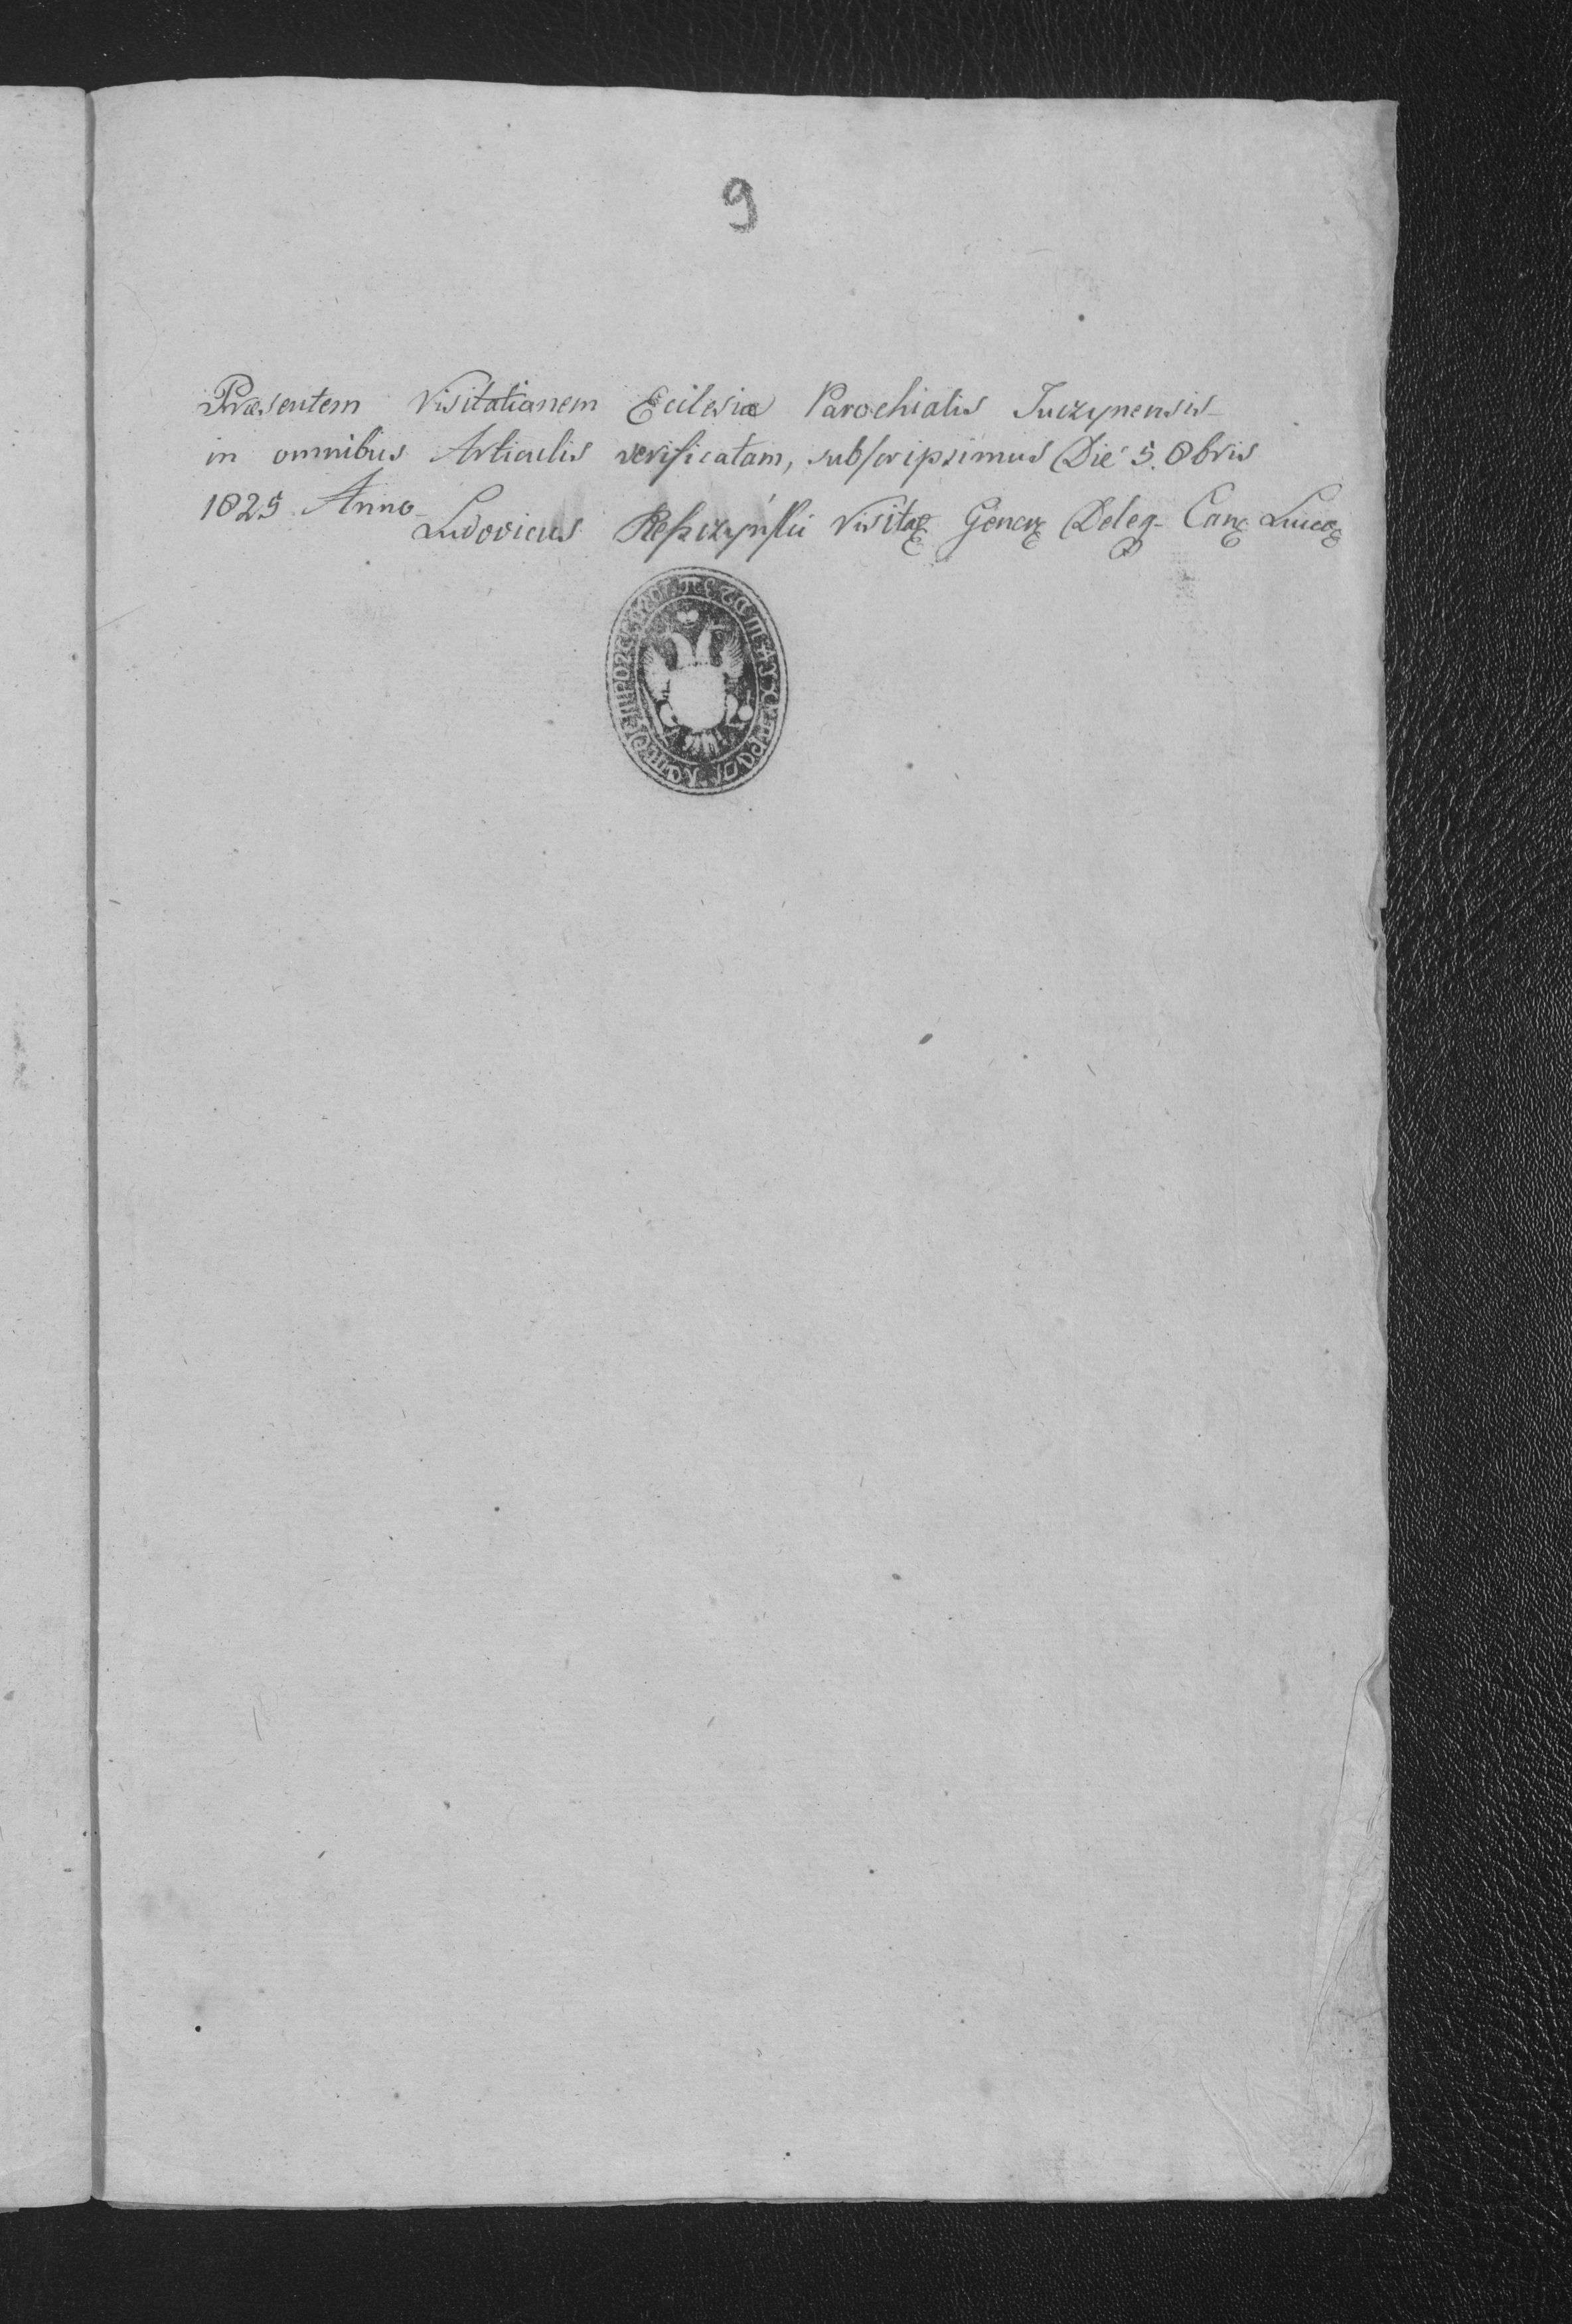 9
Præsentem Visitationem Ecclesiæ Parochialis Tuczynensis
in omnibus Articulis verificatam, subscripsimus Die 5. 8bris
1825 Anno
Ludovicus Visit Gener Deleg Can Luce